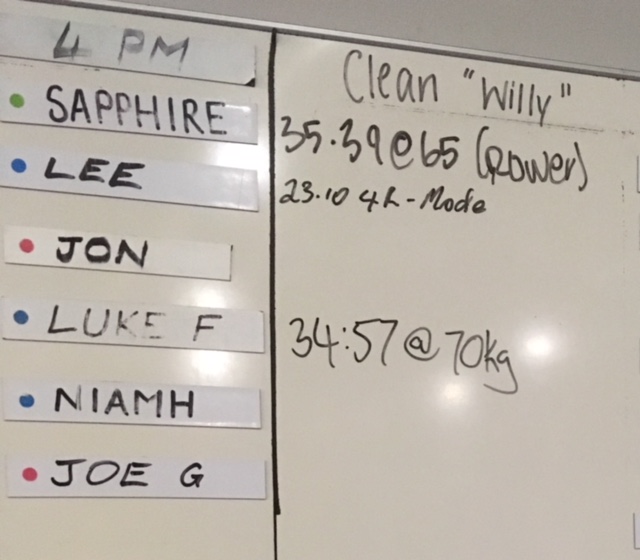 4 PM
Clean "Willy"
SAPPHIRE 35.39@65 (Power)
LEE 23.10 4R-Mode
JON
LUKE F 34:57@70kg
NIAMH
JOE G